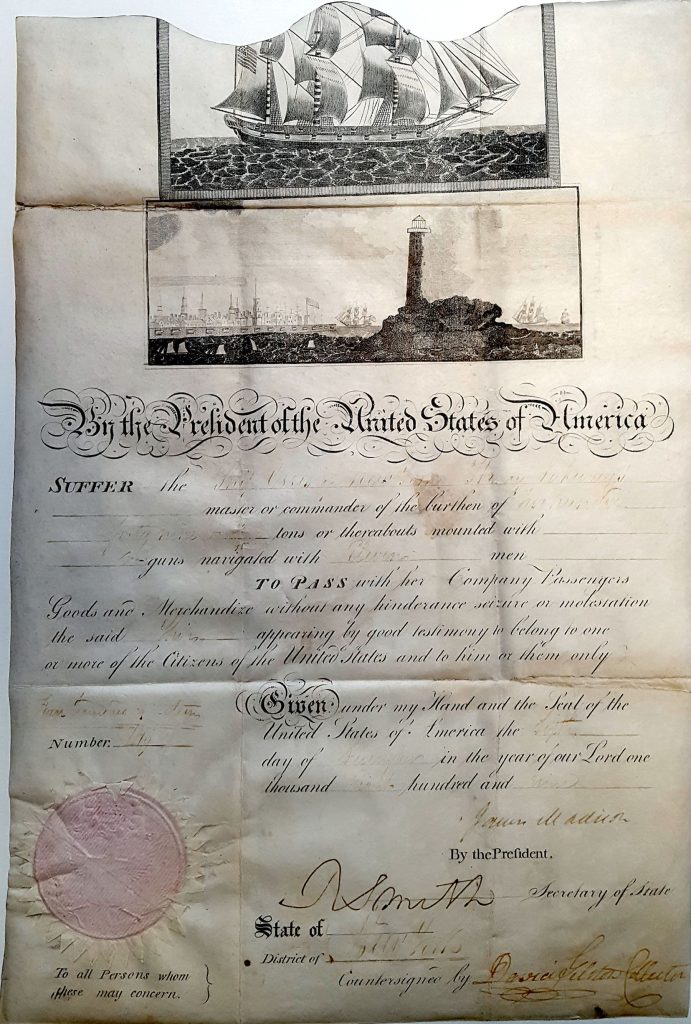 By the President of the United States of America
SUFFER the
master or commander of the burthen of
forty nine tons or thereabouts mounted with
guns navigated with men
TO PASS with her Company Passengers
Goods and Merchandize without any hinderance seizure or molestation
the said appearing by good testimony to belong to one
or more of the Citizens of the United States and to him or them only
Given under my Hand and the Seal of the
Number.
United States of America the
day of in the year of our Lord one
thousand hundred and
James Madison
By the President.
R Smith Secretary of State
State of New York
District of
Countersigned by David Gelston Collector
To all Persons whom
these may concern.